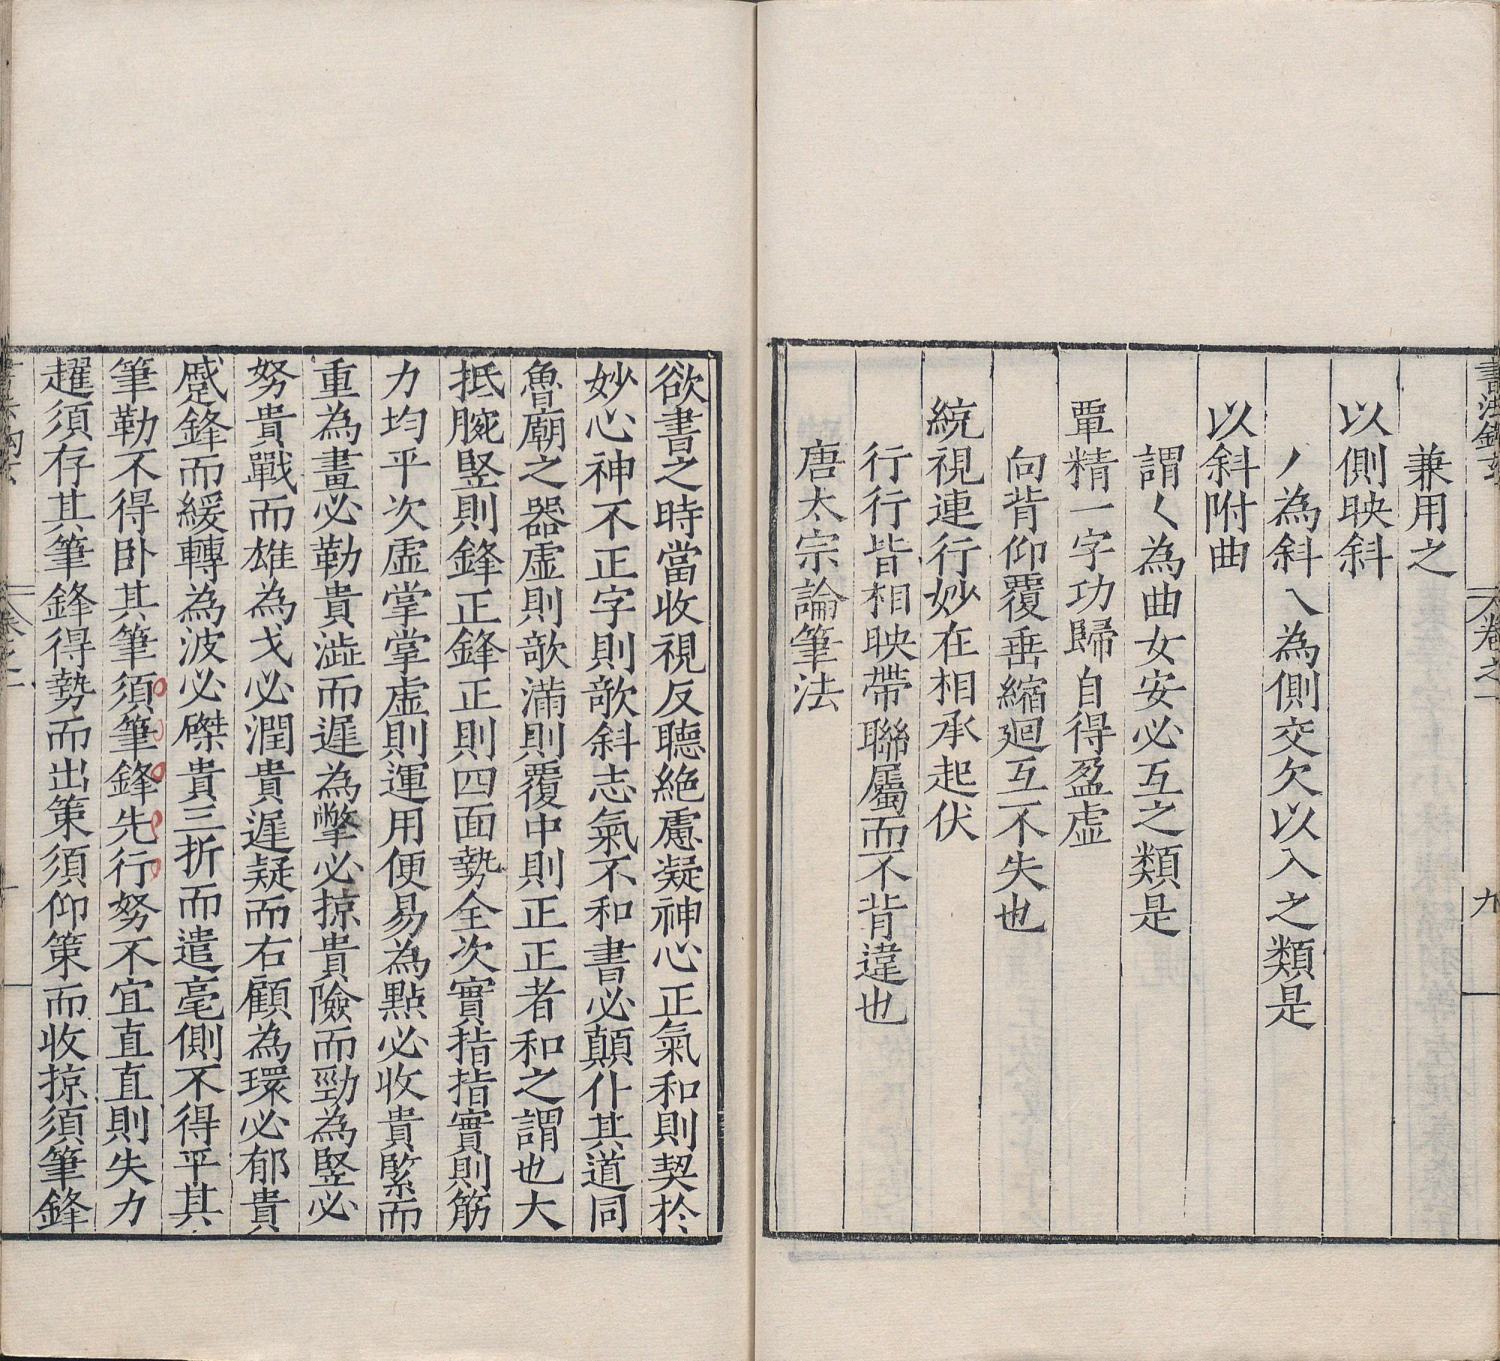 書法鉤玄 卷之一 九
兼用之
以側映斜
丿為斜乀為側交欠以入之類是
以斜附曲
謂𡿨為曲女安必互之類是
覃精一字功歸自得盈虛
向背仰覆垂縮廻互不失也
統視連行妙在相承起伏
行行皆相映帶聯屬而不背違也
唐太宗論筆法
欲書之時當收視反聽絶慮凝神心正氣和則契於
妙心神不正字則敧斜志氣不和書必顛仆其道同
魯廟之器虛則敧滿則覆中則正正者和之謂也大
抵腕竪則鋒正鋒正則四面勢全次實指指實則筋
力均平次虛掌掌虛則運用便易為點必收貴緊而
重為畫必勒貴澁而遲為撆必掠貴險而勁為竪必
努貴戰而雄為戈必潤貴遲疑而右顧為環必郁貴
蹙鋒而緩轉為波必磔貴三折而遣毫側不得平其
筆勒不得卧其筆須筆鋒先行努不宜直直則失力
趯須存其筆鋒得勢而出策須仰策而收掠須筆鋒